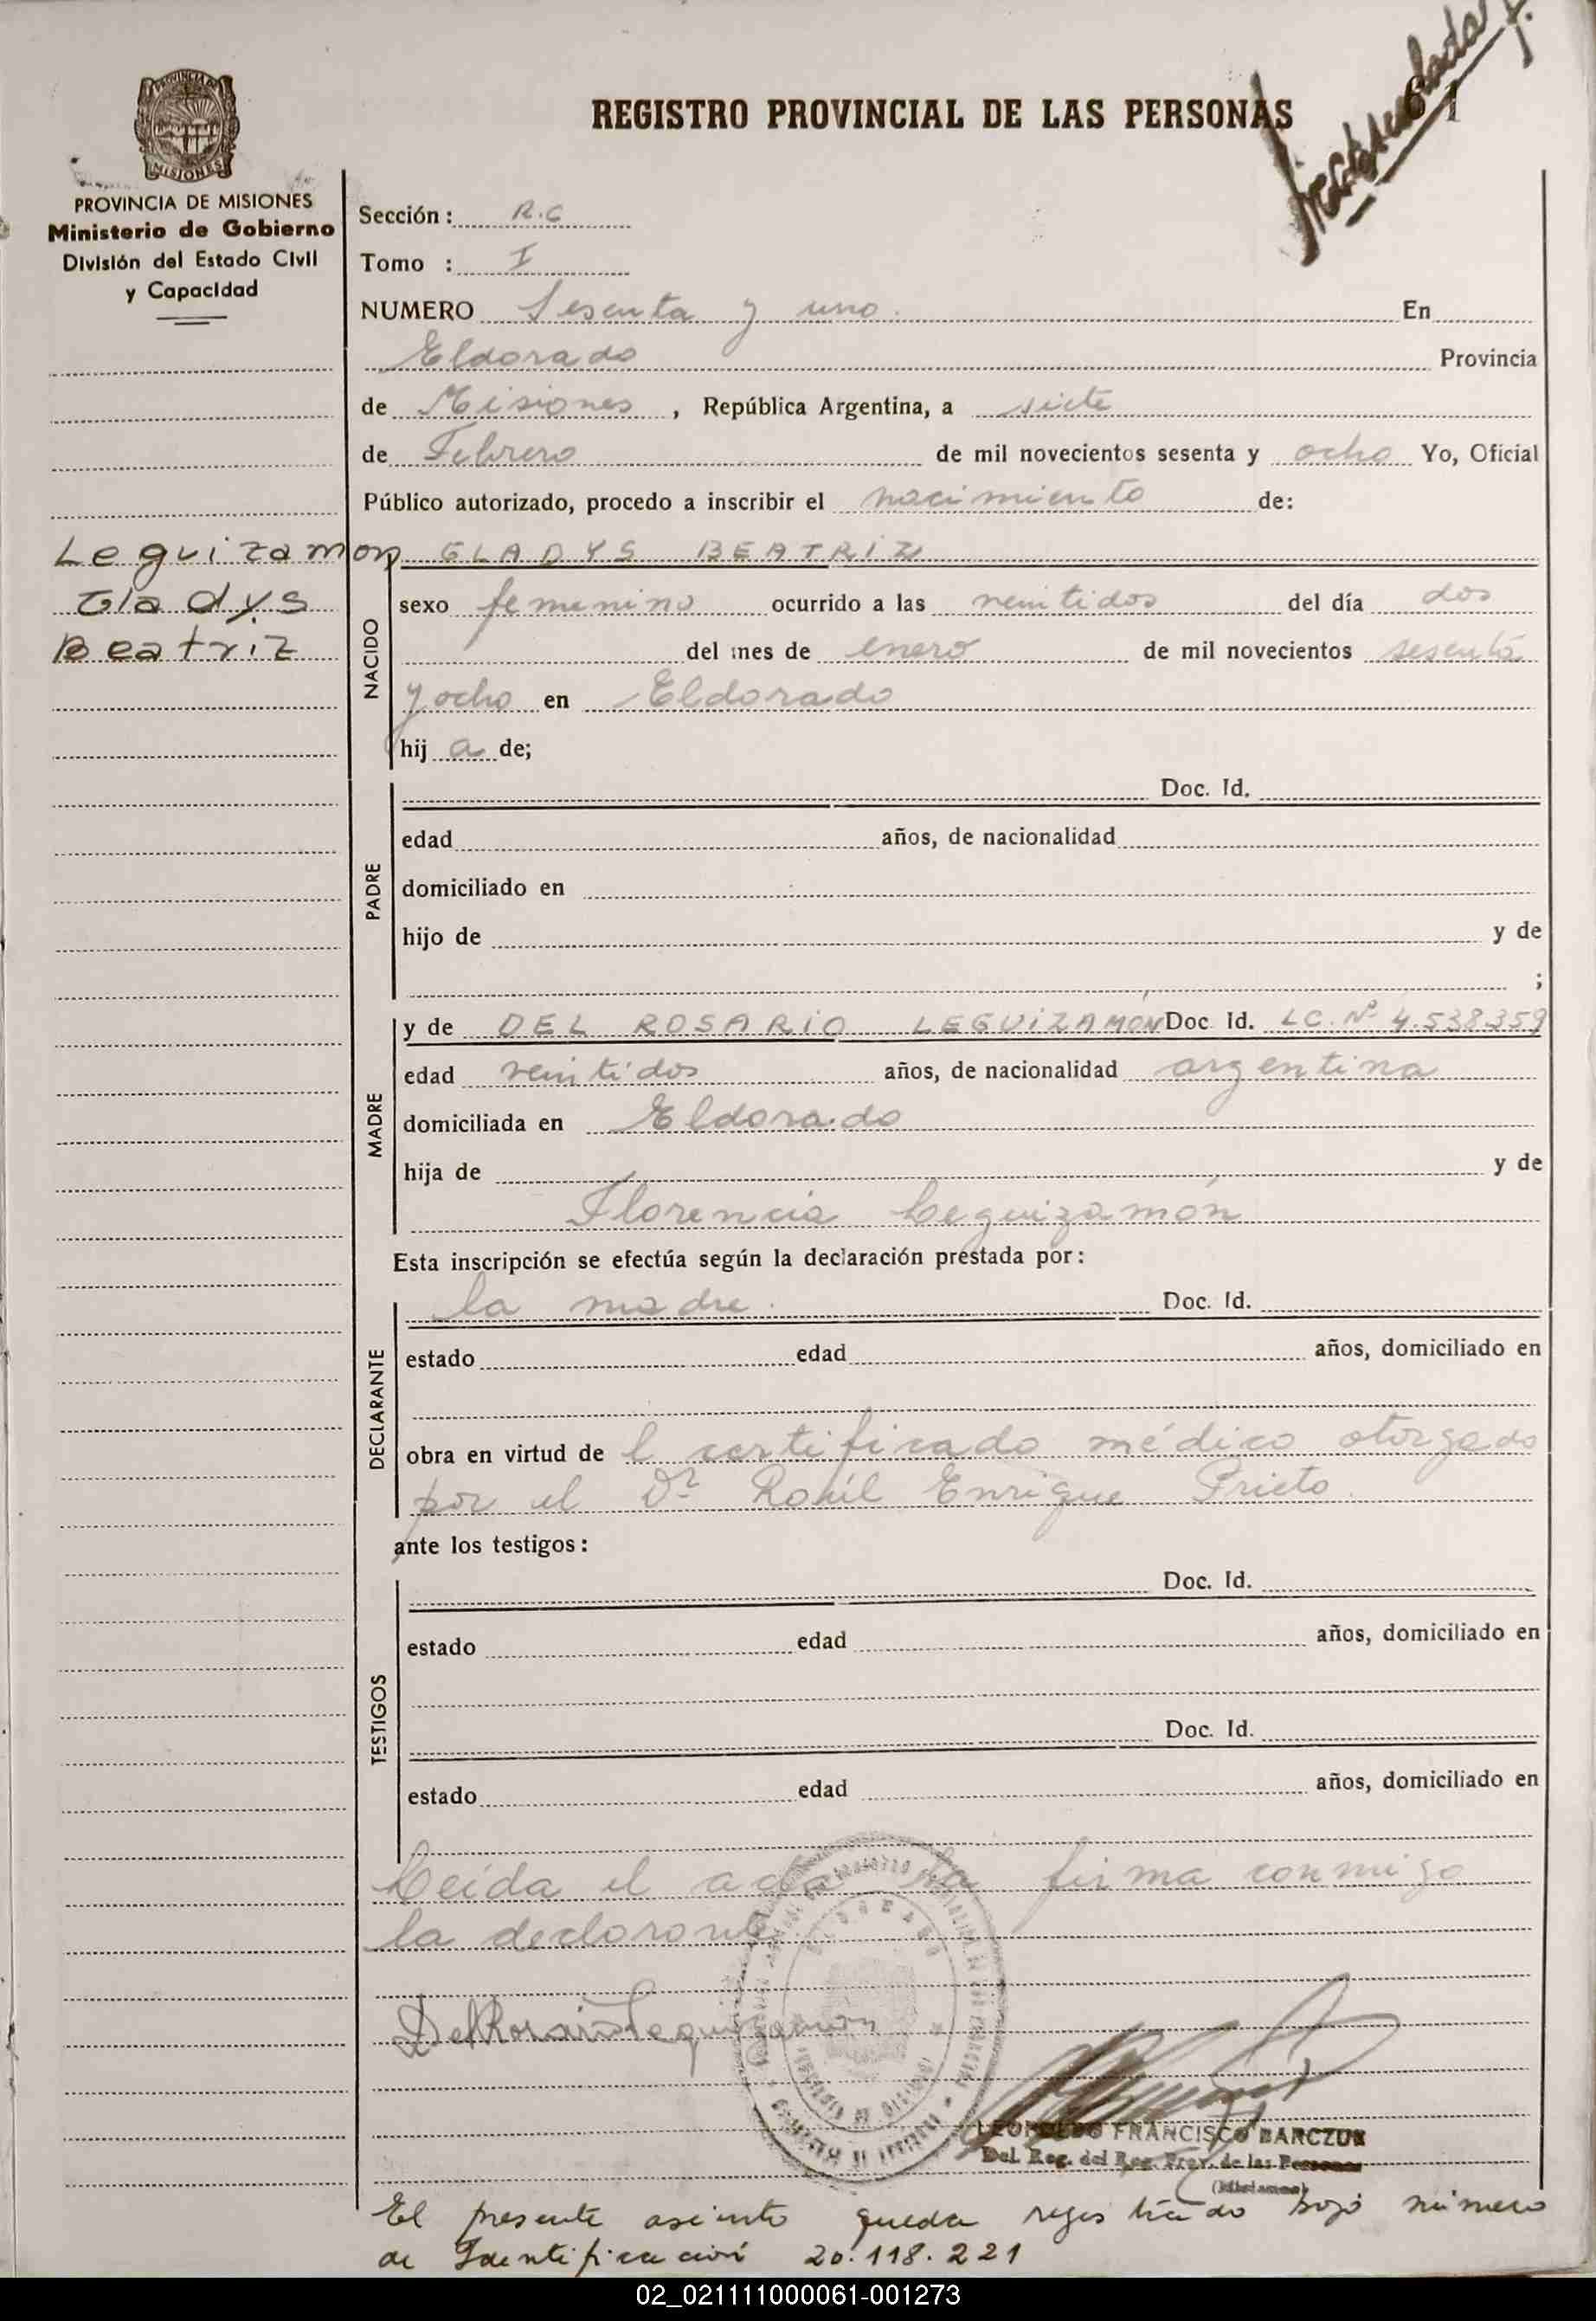 REGISTRO PROVINCIAL DE LAS PERSONAS
61
MISIONES
PROVINCIA DE MISIONES
Ministerio de Gobierno
División del Estado Civil
y Capacidad
Sección: R.C
Tomo : I
NUMERO Sesenta y uno. En
Eldorado Provincia
de Misiones, República Argentina, a siete
de Febrero de mil novecientos sesenta y ocho Yo, Oficial
Público autorizado, procedo a inscribir el nacimiento de:
Leguizamon
Gladys
Beatriz
GLADYS BEATRIZ
NACIDO
sexo femenino ocurrido a las veintidos del día dos
del mes de enero de mil novecientos sesenta
y ocho en Eldorado
hij a de;
PADRE
Doc. Id.
edad años, de nacionalidad
domiciliado en
hijo de y de
;
MADRE
y de DEL ROSARIO LEGUIZAMÓN Doc. Id. LC. Nº 4.538359
edad veintidos años, de nacionalidad argentina
domiciliada en Eldorado
hija de y de
Florencia Leguizamón
Esta inscripción se efectúa según la declaración prestada por:
DECLARANTE
la madre. Doc. Id.
estado edad años, domiciliado en
obra en virtud de l certificado médico otorgado
por el Dr Enrique Prieto.
ante los testigos:
TESTIGOS
Doc. Id.
estado edad años, domiciliado en
Doc. Id.
estado edad años, domiciliado en
Leída el acta la firma conmigo
la declarante
Del Rosario Leguizamon
LEOPOLDO FRANCISCO BARCZUK
Del. Reg. del Reg. Prov. de las Personas
(Misiones)
El presente asiento queda registrado bajo número
de Identificación 20.118.221
02_021111000061-001273